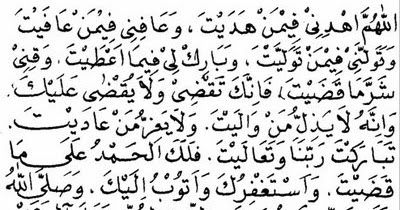 اَللّٰهُمَّ اهْدِنِيْ فِيْمَنْ هَدَيْتَ ، وَعَافِنِي فِيْمَنْ عَافَيْتَ
وَتَوَلَّنِيْ فِيْمَنْ تَوَلَّيْتَ ، وَبَارِكْ لِيْ فِيْمَا اَعْطَيْتَ . وَقِنِيْ
شَرَّمَا قَضَيْتَ ، فَاِنَّكَ تَقْضِيْ وَلَا يُقْضٰى عَلَيْكَ .
وَاِنَّهُ لَا يَذِلُّ مَنْ وَالَيْتَ . وَلَا يَعِزُّ مَنْ عَادَيْتَ .
تَبَارَكْتَ رَبَّنَا وَتَعَالَيْتَ . فَلَكَ الْحَمْدُ عَلٰى مَا
قَضَيْتَ . وَاَسْتَغْفِرُكَ وَاَتُوْبُ اِلَيْكَ . وَصَلَّى اللّٰهُ